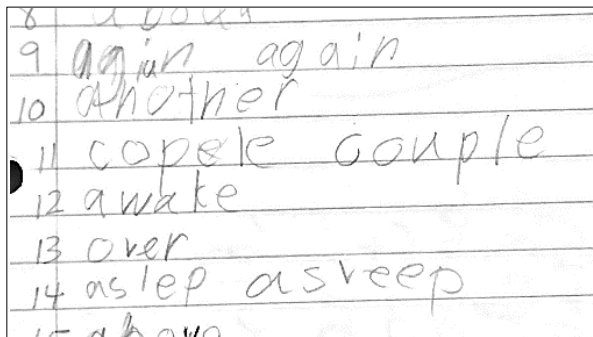 9 agiun again
10 another
11 copele couple
12 awake
13 over
14 aslep asreep
15 above